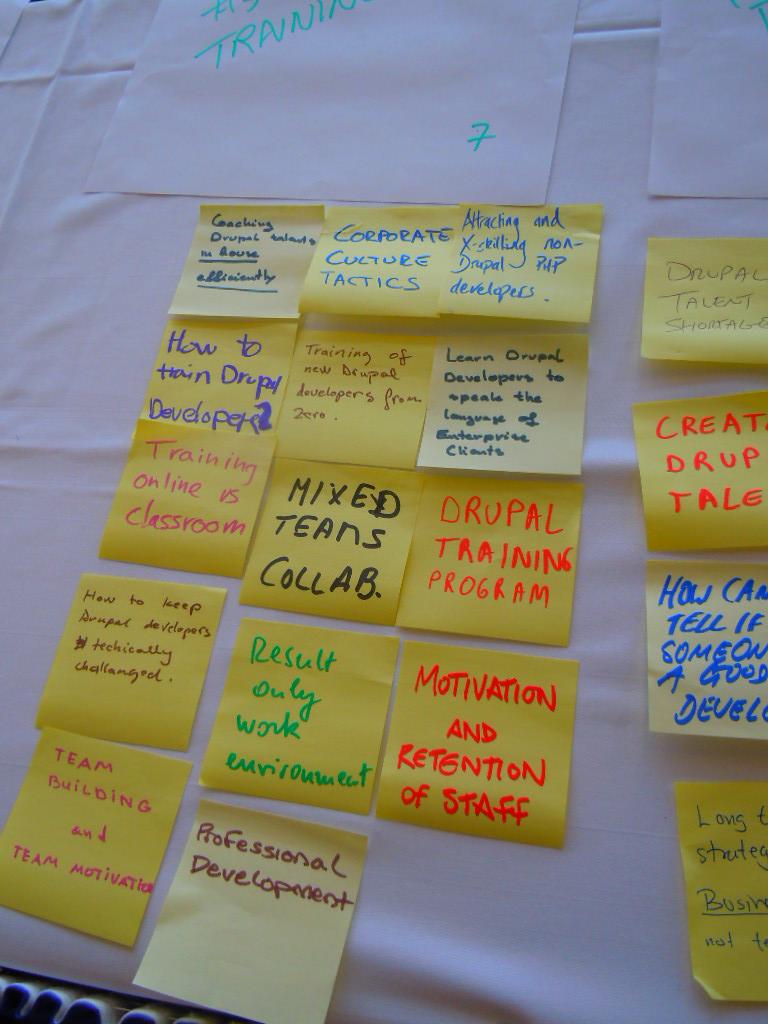 TRAINING
7
Coaching
Drupal talents
in house
efficiently
CORPORATE
CULTURE
TACTICS
Attracting and
X-skilling non-
Drupal PHP
developers.
How to
train Drupal
Developers?
Training of
new Drupal
developers from
zero.
Learn Drupal
Developers to
speake the
language of
Enterprise
Clients
Training
online vs
classroom
MIXED
TEAMS
COLLAB.
DRUPAL
TRAINING
PROGRAM
How to keep
Drupal developers
techically
challanged.
Result
only
work
environment
MOTIVATION
AND
RETENTION
OF STAFF
TEAM
BUILDING
and
TEAM MOTIVATION
Professional
Development
DRUPAL
TALENT
SHORTAGE
CREAT
DRUP
TALE
HOW CAN
TELL IF
SOMEON
A GOOD
DEVELO
Long t
strateg
Busin
not te